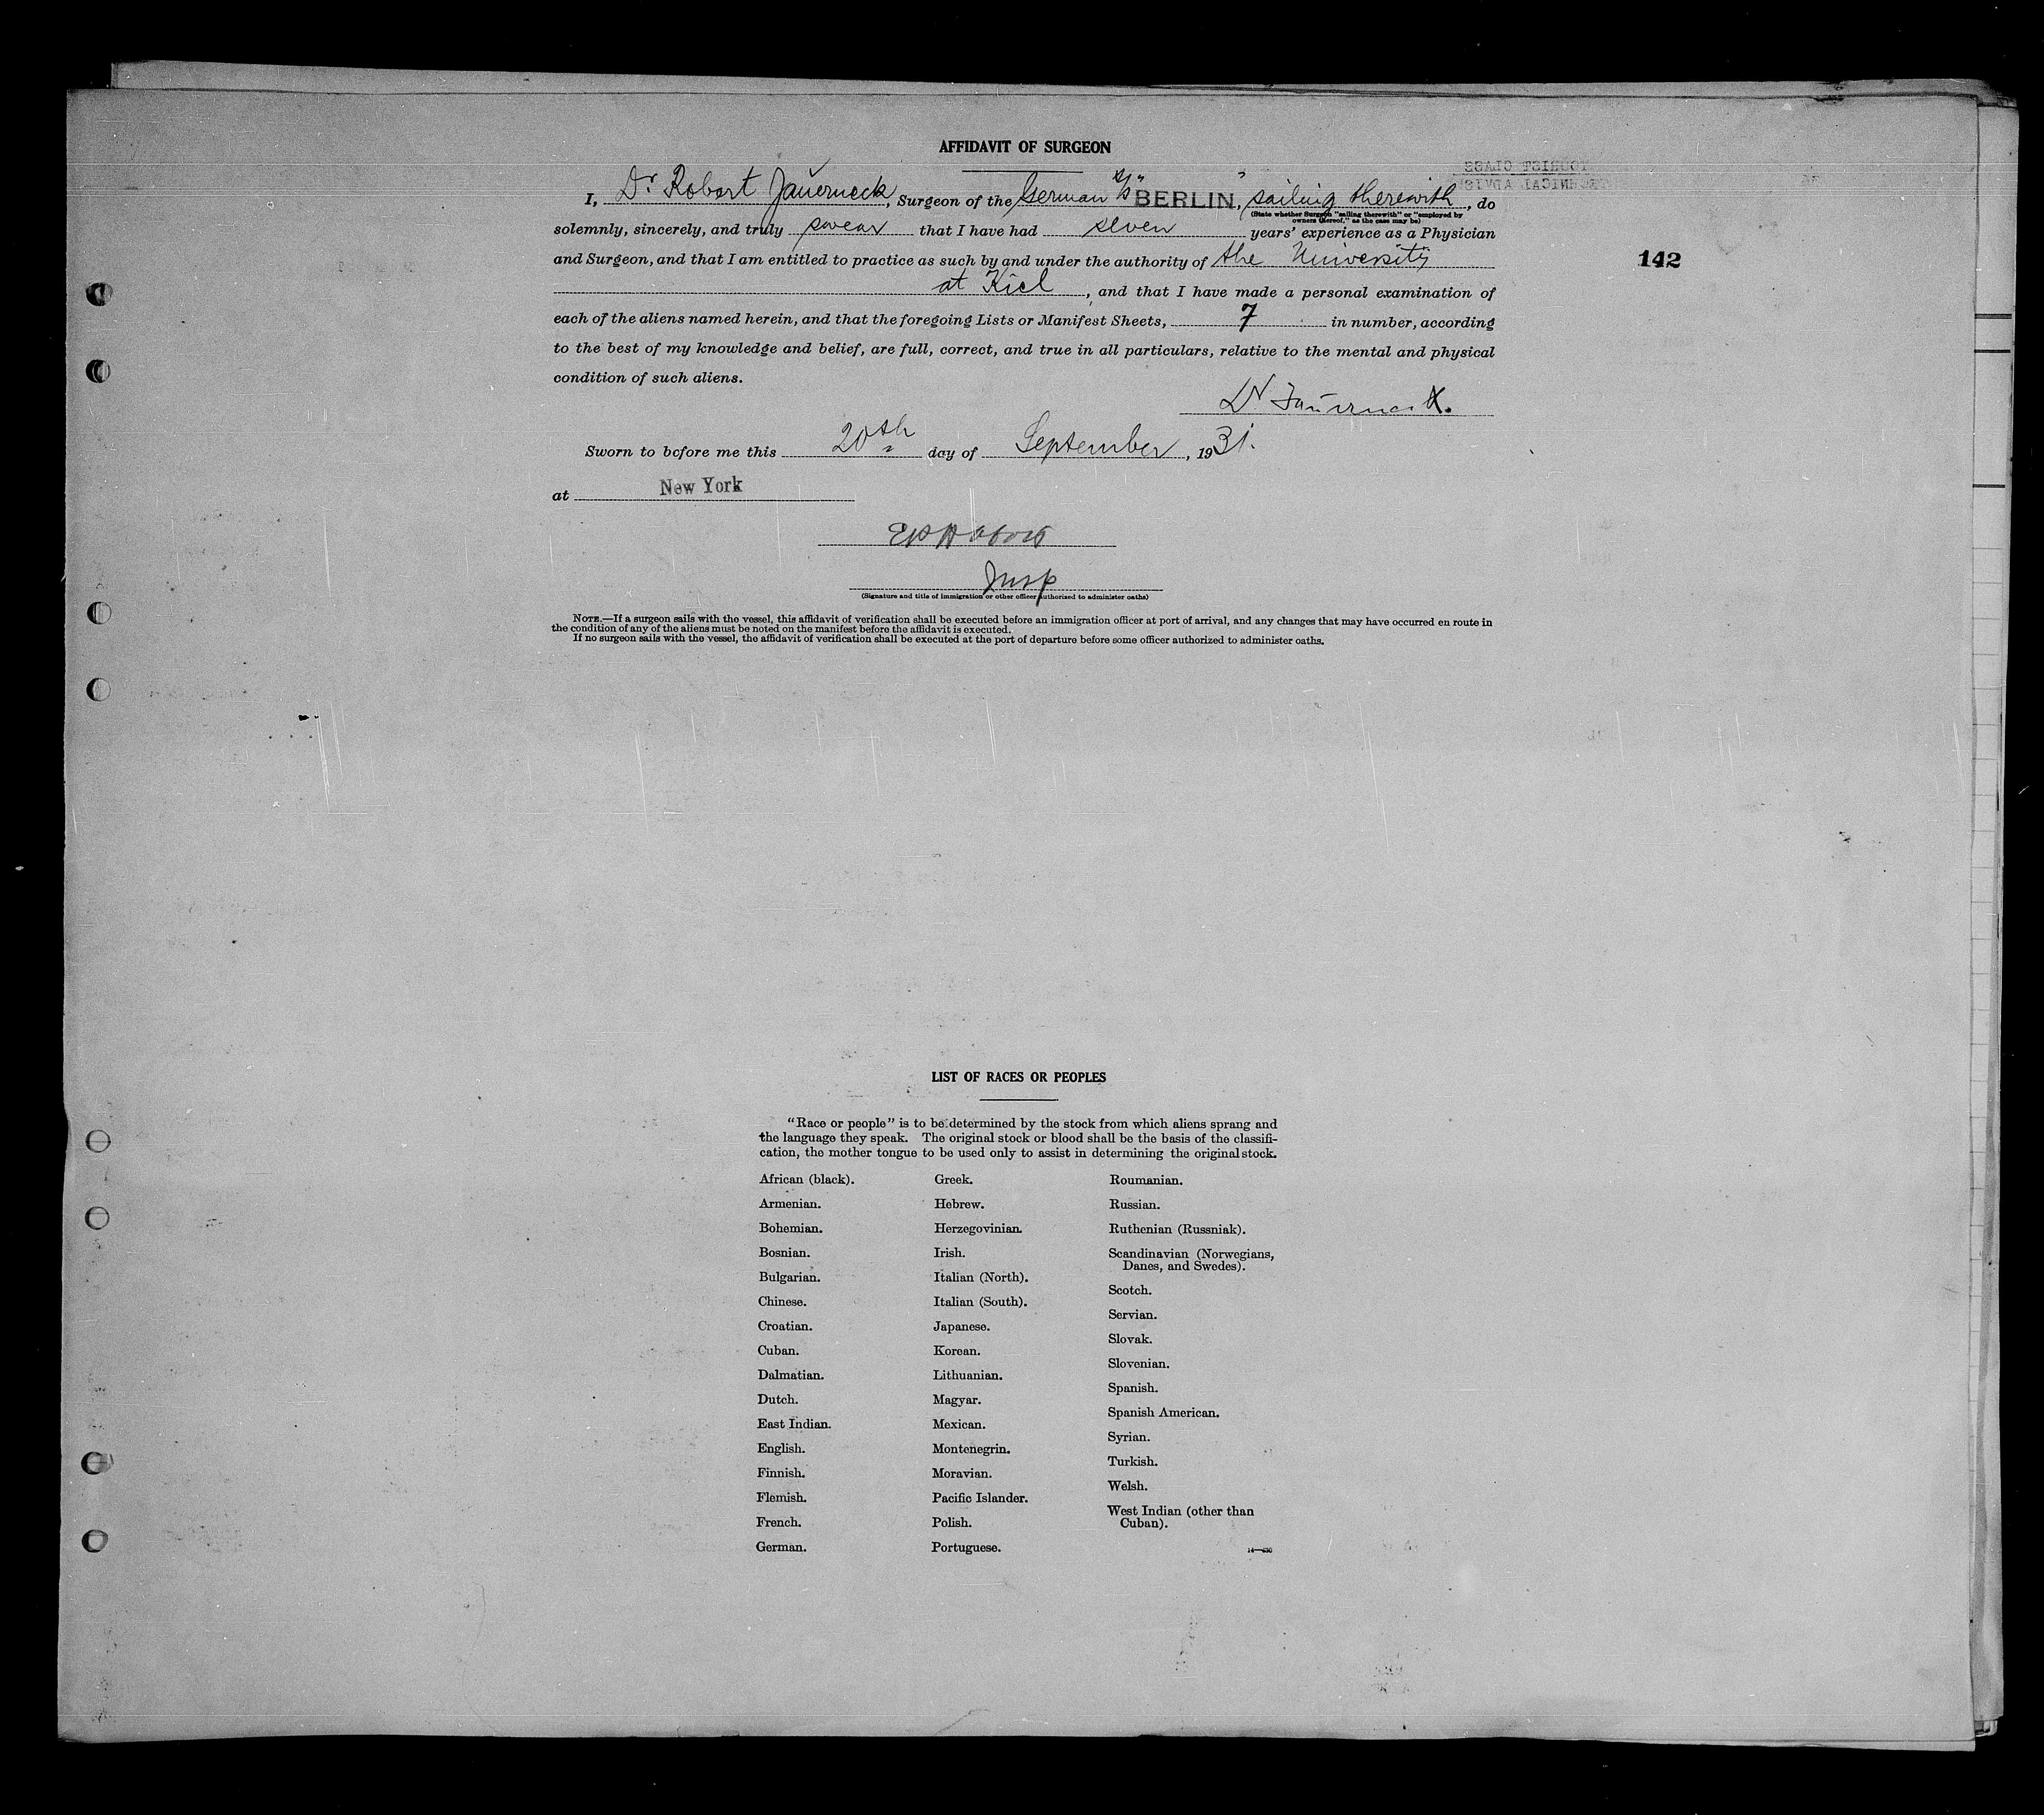 AFFIDAVIT OF SURGEON
I, Dr Robert Jauerneck, Surgeon of the German S/S "BERLIN", sailing therewith, do
(State whether Surgeon "sailing therewith" or "employed by
owners thereof," as the case may be)
solemnly, sincerely, and truly swear that I have had seven years' experience as a Physician
and Surgeon, and that I am entitled to practice as such by and under the authority of the University
142
at Kiel, and that I have made a personal examination of
each of the aliens named herein, and that the foregoing Lists or Manifest Sheets, 7 in number, according
to the best of my knowledge and belief, are full, correct, and true in all particulars, relative to the mental and physical
condition of such aliens.
Dr Jauerneck.
Sworn to before me this 20th day of September, 1931.
at New York
Insp
(Signature and title of immigration or other officer authorized to administer oaths)
NOTE.—If a surgeon sails with the vessel, this affidavit of verification shall be executed before an immigration officer at port of arrival, and any changes that may have occurred en route in
the condition of any of the aliens must be noted on the manifest before the affidavit is executed.
If no surgeon sails with the vessel, the affidavit of verification shall be executed at the port of departure before some officer authorized to administer oaths.
LIST OF RACES OR PEOPLES
"Race or people" is to be determined by the stock from which aliens sprang and
the language they speak. The original stock or blood shall be the basis of the classifi-
cation, the mother tongue to be used only to assist in determining the original stock.
African (black).
Armenian.
Bohemian.
Bosnian.
Bulgarian.
Chinese.
Croatian.
Cuban.
Dalmatian.
Dutch.
East Indian.
English.
Finnish.
Flemish.
French.
German.
Greek.
Hebrew.
Herzegovinian.
Irish.
Italian (North).
Italian (South).
Japanese.
Korean.
Lithuanian.
Magyar.
Mexican.
Montenegrin.
Moravian.
Pacific Islander.
Polish.
Portuguese.
Roumanian.
Russian.
Ruthenian (Russniak).
Scandinavian (Norwegians,
Danes, and Swedes).
Scotch.
Servian.
Slovak.
Slovenian.
Spanish.
Spanish American.
Syrian.
Turkish.
Welsh.
West Indian (other than
Cuban).